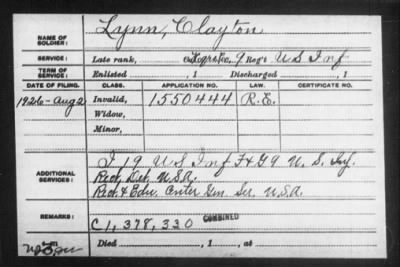 NAME OF SOLDIER: Lynn, Clayton
SERVICE: Late rank, 9 Reg't U S Inf
TERM OF SERVICE: Enlisted , 1 Discharged , 1
DATE OF FILING. CLASS. APPLICATION NO. LAW. CERTIFICATE NO.
1926-Aug 2 Invalid, 1550444 R.E.
Widow,
Minor,
ADDITIONAL SERVICES: I 19 U S Inf F & G 9 U. S. Inf.
Rct. Det. U.S.A.
Rct. & Edu. Center Gen. Ser. U.S.A.
REMARKS: C 1,378,330 COMBINED
Died , 1 , at